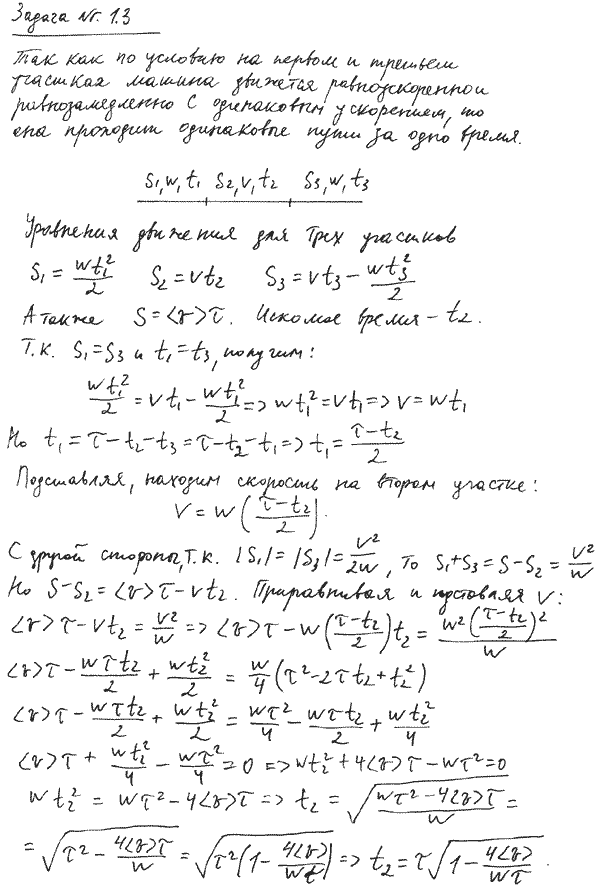 Задача №г. 1.3
Так как по условию на первом и третьем
участках машина движется равноускоренно и
равнозамедленно с одинаковым ускорением, то
она проходит одинаковые пути за одно время.
S₁,w,t₁ S₂,v,t₂ S₃,w,t₃
Уравнения движения для трех участков
S₁ = wt₁²/2 S₂ = vt₂ S₃ = vt₃ − wt₃²/2
А также S = <v>τ. Искомое время – t₂.
Т.к. S₁=S₃ и t₁=t₃, получим:
wt₁²/2 = vt₁ − wt₁²/2 => wt₁² = vt₁ => v = wt₁
Но t₁ = τ−t₂−t₃ = τ−t₂−t₁ => t₁ = (τ−t₂)/2
Подставляя, находим скорость на втором участке:
v = w((τ−t₂)/2).
С другой стороны, т.к. |S₁| = |S₃| = v²/2w, то S₁+S₃ = S−S₂ = v²/w
Но S−S₂ = <v>τ − vt₂. Приравнивая и подставляя v:
<v>τ − vt₂ = v²/w => <v>τ − w((τ−t₂)/2)t₂ = w²((τ−t₂)/2)²/w
<v>τ − wτt₂/2 + wt₂²/2 = w/4(τ² − 2τt₂ + t₂²)
<v>τ − wτt₂/2 + wt₂²/2 = wτ²/4 − wτt₂/2 + wt₂²/4
<v>τ + wt₂²/4 − wτ²/4 = 0 => wt₂² + 4<v>τ − wτ² = 0
wt₂² = wτ² − 4<v>τ => t₂ = √((wτ² − 4<v>τ)/w) =
= √(τ² − 4<v>τ/w) = √(τ²(1 − 4<v>/wτ)) => t₂ = τ√(1 − 4<v>/wτ).